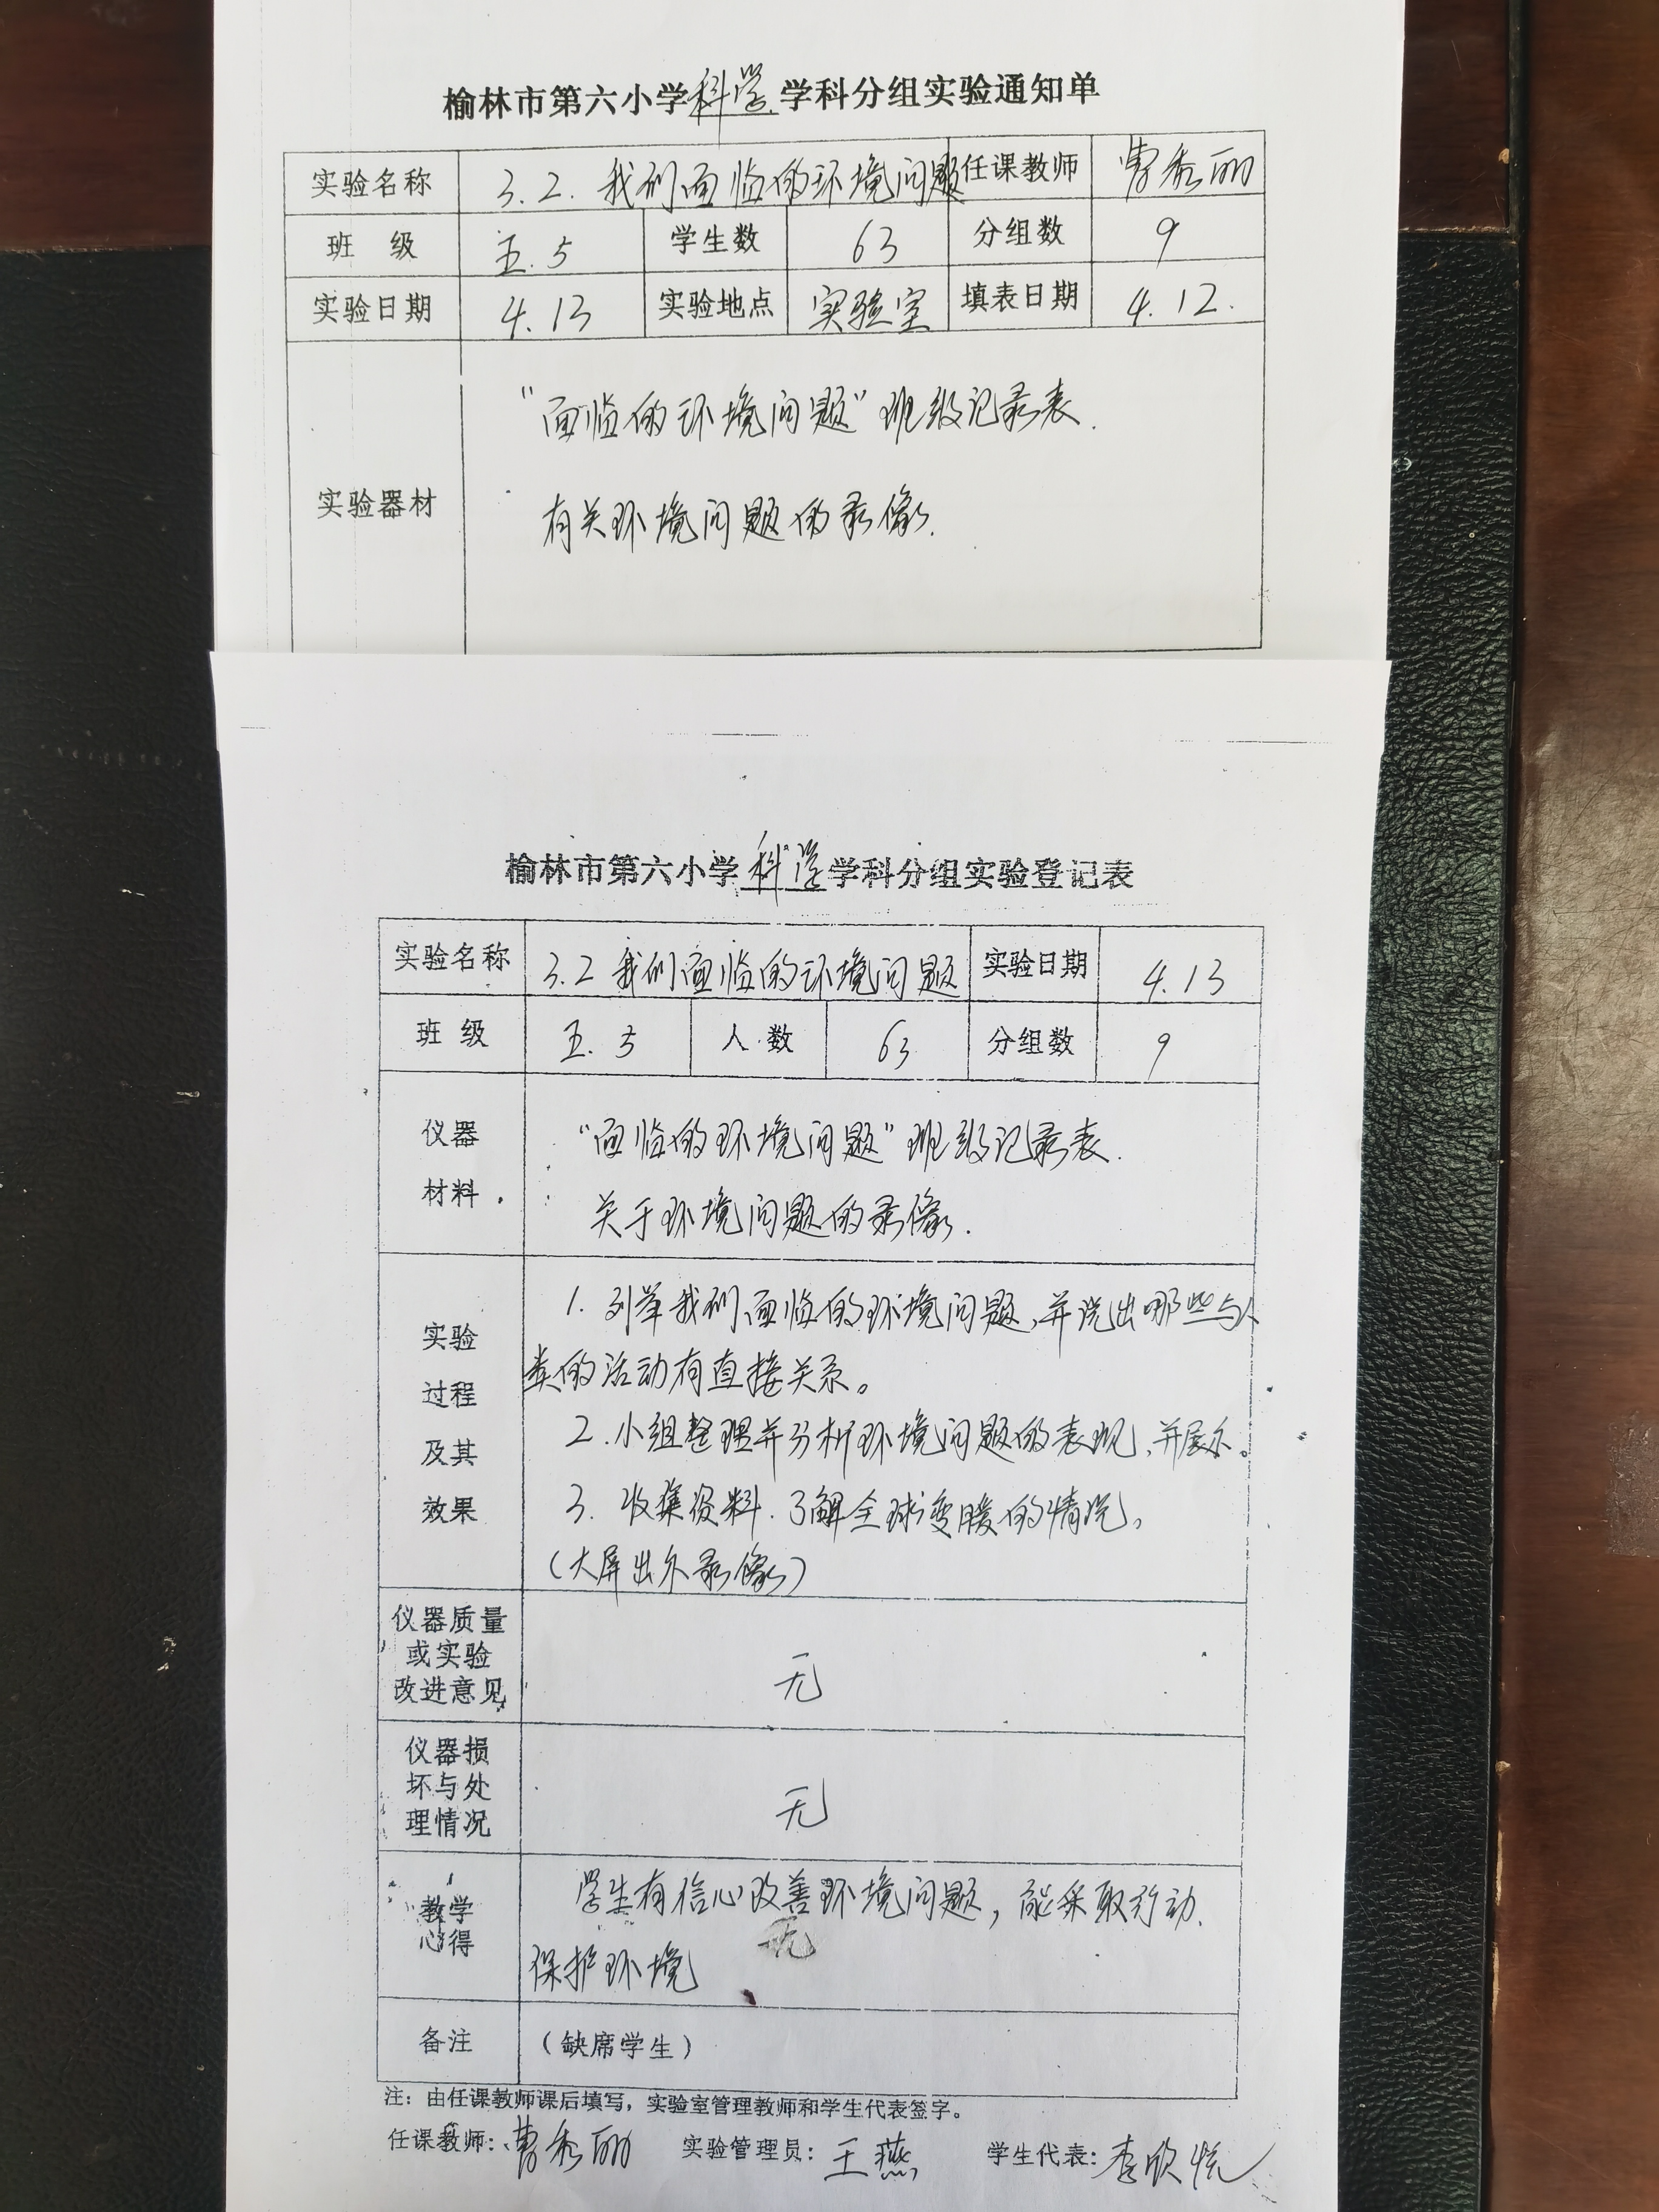 榆林市第六小学科学学科分组实验通知单
实验名称 3.2.我们面临的环境问题 任课教师 曹秀丽
班 级 五.5 学生数 63 分组数 9
实验日期 4.13 实验地点 实验室 填表日期 4.12.
实验器材
“面临的环境问题”班级记录表.
有关环境问题的录像.
榆林市第六小学科学学科分组实验登记表
实验名称 3.2 我们面临的环境问题 实验日期 4.13
班 级 五.5 人 数 63 分组数 9
仪器
材料
“面临的环境问题”班级记录表.
关于环境问题的录像.
实验
过程
及其
效果
1.列举我们面临的环境问题,并说出哪些与人
类的活动有直接关系。
2.小组整理并分析环境问题的表现,并展示。
3.收集资料.了解全球变暖的情况,
(大屏出示录像)
仪器质量
或实验
改进意见
无
仪器损
坏与处
理情况
无
教学
心得
学生有信心改善环境问题,能采取行动.
无
保护环境
备注 (缺席学生)
注:由任课教师课后填写,实验室管理教师和学生代表签字。
任课教师:曹秀丽 实验管理员:王燕 学生代表:李欣悦